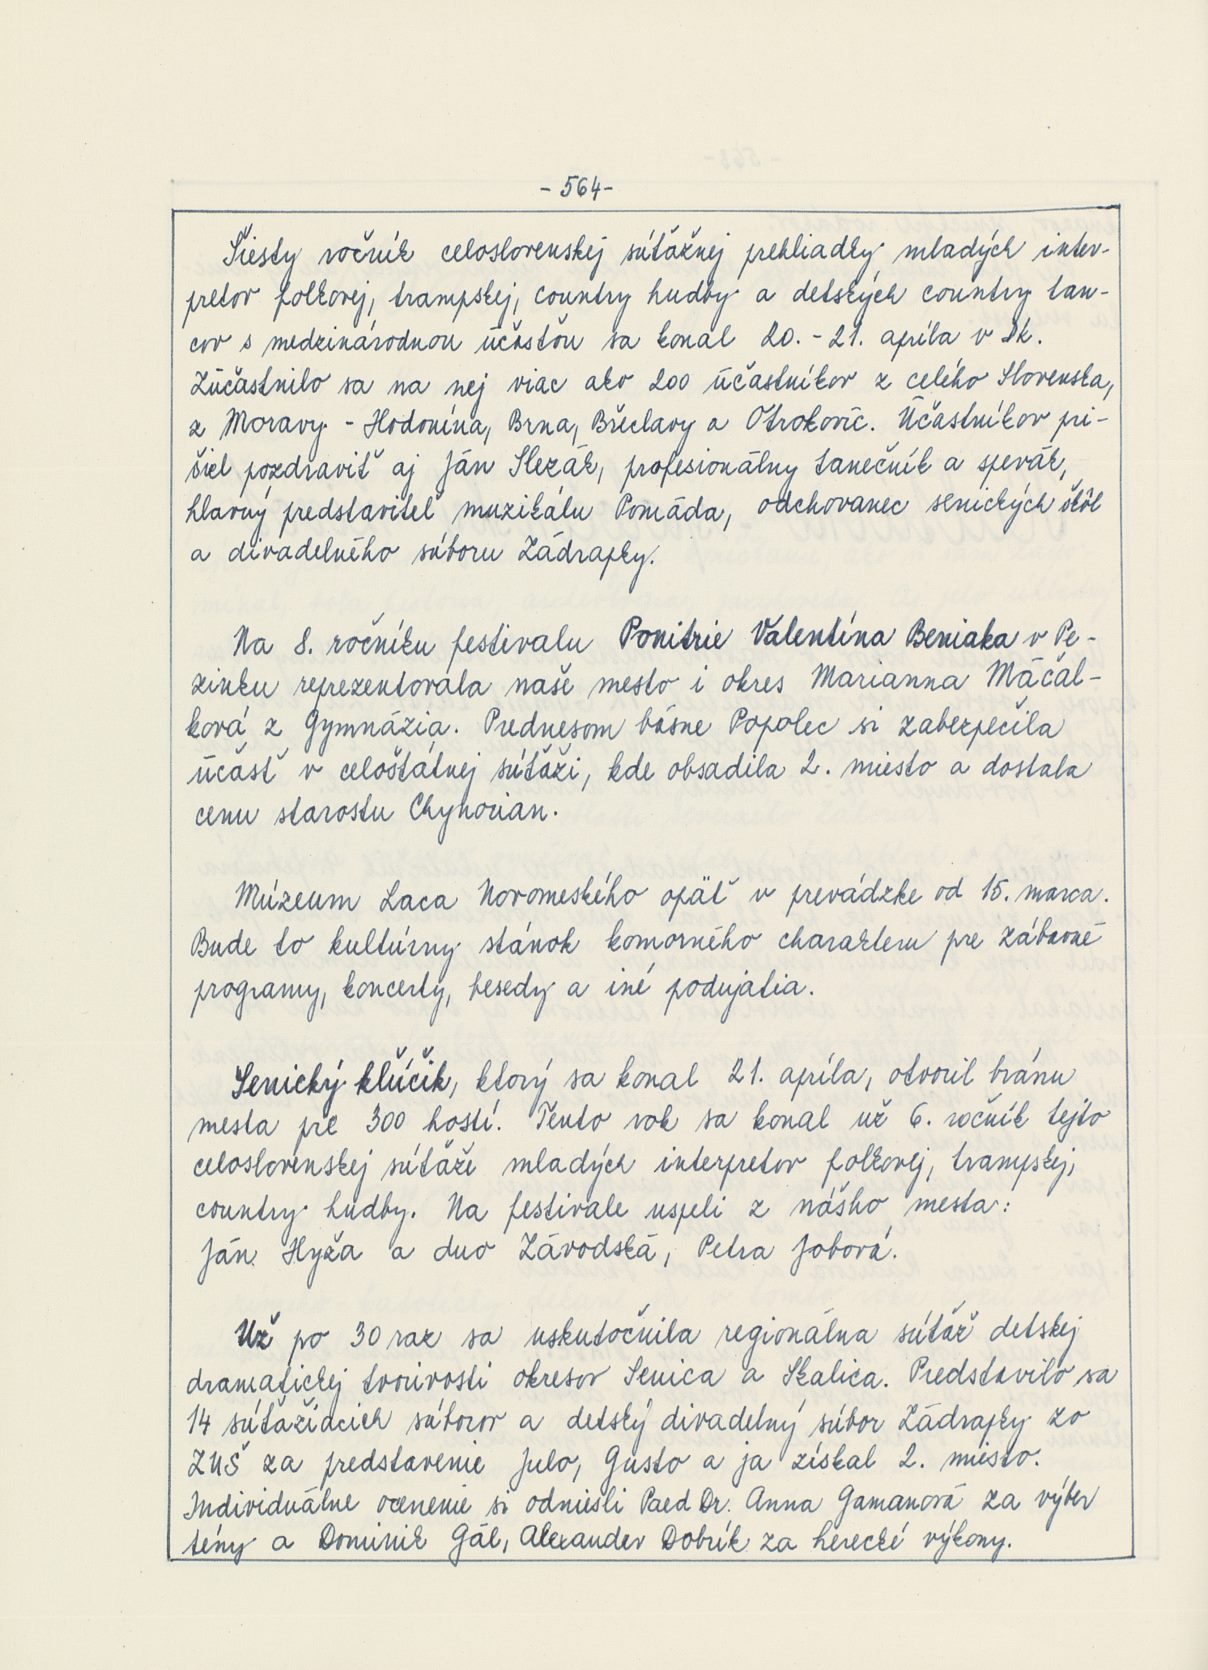 - 564 -
Šiesty ročník celoslovenskej súťažnej prehliadky mladých inter-
pretov folkovej, trampskej, country hudby a detských country tan-
cov s medzinárodnou účasťou sa konal 20. - 21. apríla v DK.
Zúčastnilo sa na nej viac ako 200 účastníkov z celého Slovenska,
z Moravy - Hodonína, Brna, Břeclavy a Otrokovíc. Účastníkov pri-
šiel pozdraviť aj Ján Slezák, profesionálny tanečník a spevák,
hlavný predstaviteľ muzikálu Pomáda, odchovanec senických škôl
a divadelného súboru Zádrapky.
Na 8. ročníku festivalu Ponitrie Valentína Beniaka v Pe-
zinku reprezentovala naše mesto i okres Marianna Máčal-
ková z Gymnázia. Prednesom básne Popolec si zabezpečila
účasť v celoštátnej súťaži, kde obsadila 2. miesto a dostala
cenu starostu Chynorian.
Múzeum Laca Novomeského opäť v prevádzke od 15. marca.
Bude to kultúrny stánok komorného charakteru pre zábavné
programy, koncerty, besedy a iné podujatia.
Senický kľúčik, ktorý sa konal 21. apríla, otvoril bránu
mesta pre 300 hostí. Tento rok sa konal už 6. ročník tejto
celoslovenskej súťaže mladých interpretov folkovej, trampskej,
country hudby. Na festivale uspeli z nášho mesta:
Ján Hyža a duo Závodská, Petra Jobová.
Už po 30 raz sa uskutočnila regionálna súťaž detskej
dramatickej tvorivosti okresov Senica a Skalica. Predstavilo sa
14 súťažiacich súborov a detský divadelný súbor Zádrapky zo
ZUŠ za predstavenie Julo, Gusto a ja získal 2. miesto.
Individuálne ocenenie si odniesli Paed Dr. Anna Gamanová za výber
témy a Dominik Gál, Alexander Dobrík za herecké výkony.